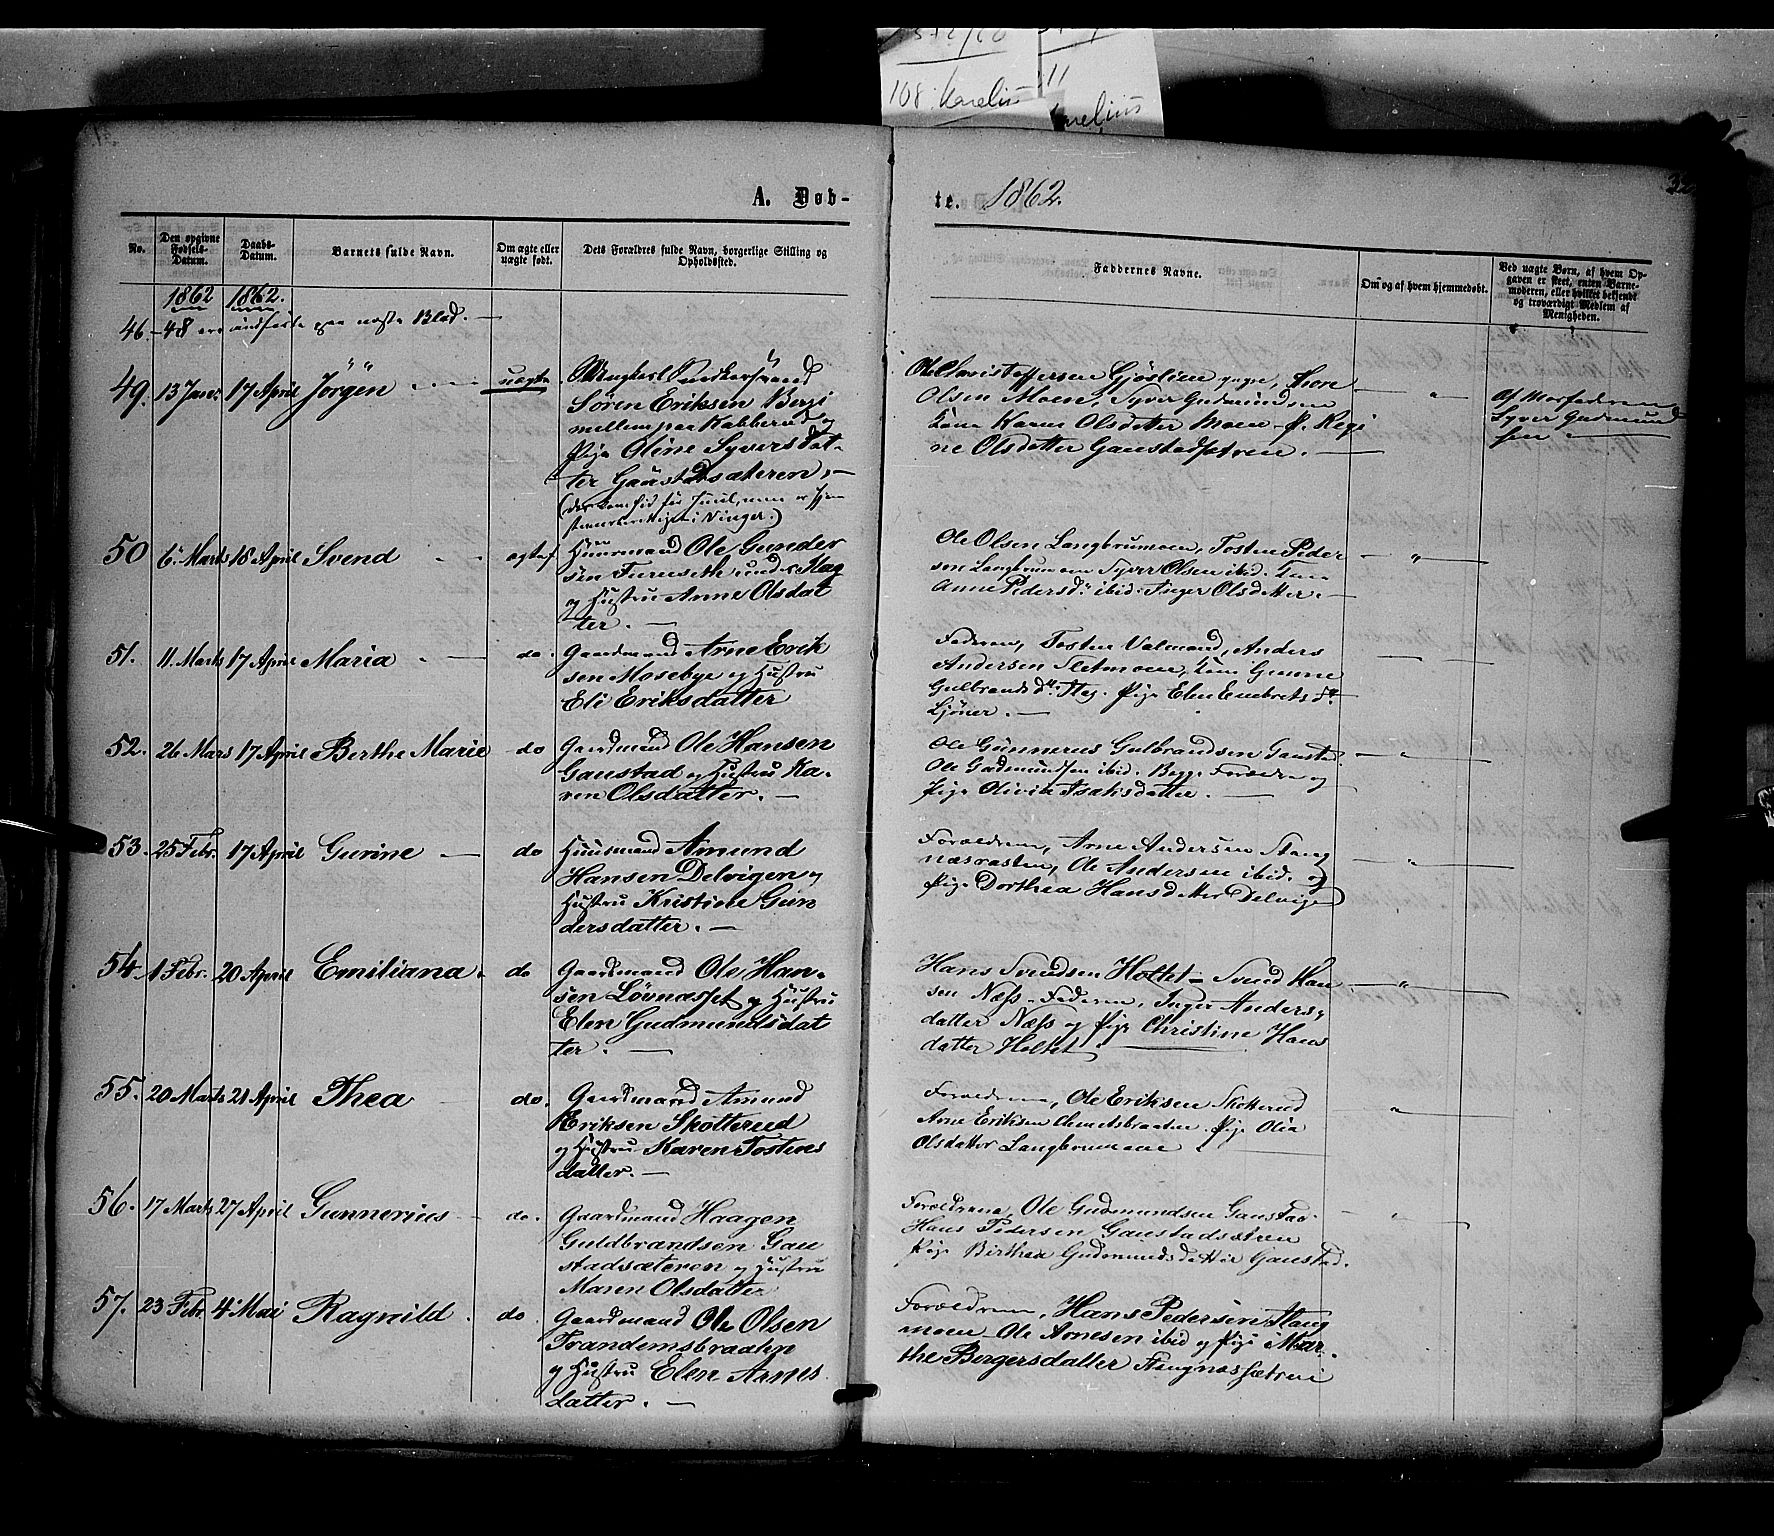 108. Karelius
11
A. Døb-
te. 1862.
32
No.
Den opgivne Fødsels-Datum.
Daabs-Datum.
Barnets fulde Navn.
Om ægte eller uægte født.
Dets Forældres fulde Navn, borgerlige Stilling og Opholdssted.
Faddernes Navne.
Om og af hvem hjemmedøbt.
Ved uægte Børn, af hvem Opgaven er skeet, enten Barnemoderen, eller hvilket bekjendt og troværdigt Medlem af Menigheden.
1862 1862.
46-48 ere indførte paa næste Blad.
49. 13 Janr. 17 April Jörgen uægte
Ungkarl
Sören Eriksen Berg
mellem paa Kabberud og
Pige Oline Syversdat-
ter Gaustadsæteren.
Ole Christoffersen Gjöslien yngre, Tore
Olsen Moen, Syver Gudmundsen
Kone Karen Olsdatter Moen - P. Regi
ne Olsdatter Gaustadsetren.
Af Morfaderen
Syver Gudmund
sen
50 6 Marts 18 April Svend ægtef.
Huusmand Ole Gunder
sen Furuseth under Hag
og Hustru Anne Olsdat
ter.
Ole Olsen Langbrumoen, Tosten Peder
sen Langbrumoen Syver Olsen ibid. Kone
Anne Pedersd. ibid. Inger Olsdatter.
51. 11. Marts 17 April Maria do.
Gaardmand Arne Erik
sen Mosebye og Hustru
Eli Eriksdatter
Faderen, Tosten Valmand, Anders
Andersen Sletmoen, Kone Gunne
Gulbrandsd. Hag. Pige Elen Embretsd.
Ljöner.
52. 26 Mars 17 April Berthe Marie do
Gaardmand Ole Hansen
Gaustad og Hustru Ka-
ren Olsdatter.
Ole Gunnerus Gulbrandsen Gaustad.
Ole Gudmundsen ibid. Begge Forældre og
Pige Olivie Isaksdatter.
53. 25 Febr. 17 April Gurine do
Huusmand Amund
Hansen Delvigen og
Hustru Kristine Gun
dersdatter.
Forældrene, Arne Andersen Stang
næsrasten, Ole Andersen ibid. og
Pige Dorthea Hansdatter Delvigen
54. 1 Febr. 20 April Emiliana. do
Gaardmand Ole Han-
sen Lövnæsset og Hustru
Elen Gudmundsdat
ter.
Hans Svendsen Holtet - Svend Han
sen Næss - Faderen, Inger Anders-
datter Næss og Pige Christine Hans
datter Holtet
55. 20 Marts 21 April Thea do.
Gaardmand Amund
Eriksen Skotterud
og Hustru Karen Tostens
datter.
Forældrene, Ole Eriksen Skotterud
Arne Eriksen Clemetsbraaten. Pige Olia
Olsdatter Langbrumoen
56. 17 Marts 27 April Gunnerius do.
Gaardmand Haagen
Guldbrandsen Gau
stadsæteren og Hustru
Maren Olsdatter
Forældrene, Ole Gudmundsen Gaustad.
Hans Pedersen Gaustadsætren
Pige Birthea Gudmundsdatter Gaustad.
57. 23 Febr. 4 Mai Ragnild do.
Gaardmand Ole Olsen
Trandemsbraaten
og Hustru Elen Arnes
datter.
Forældrene, Hans Pedersen Stang
moen - Ole Arnesen ibid og Pige Mar-
the Bergersdatter Stangnæssætren